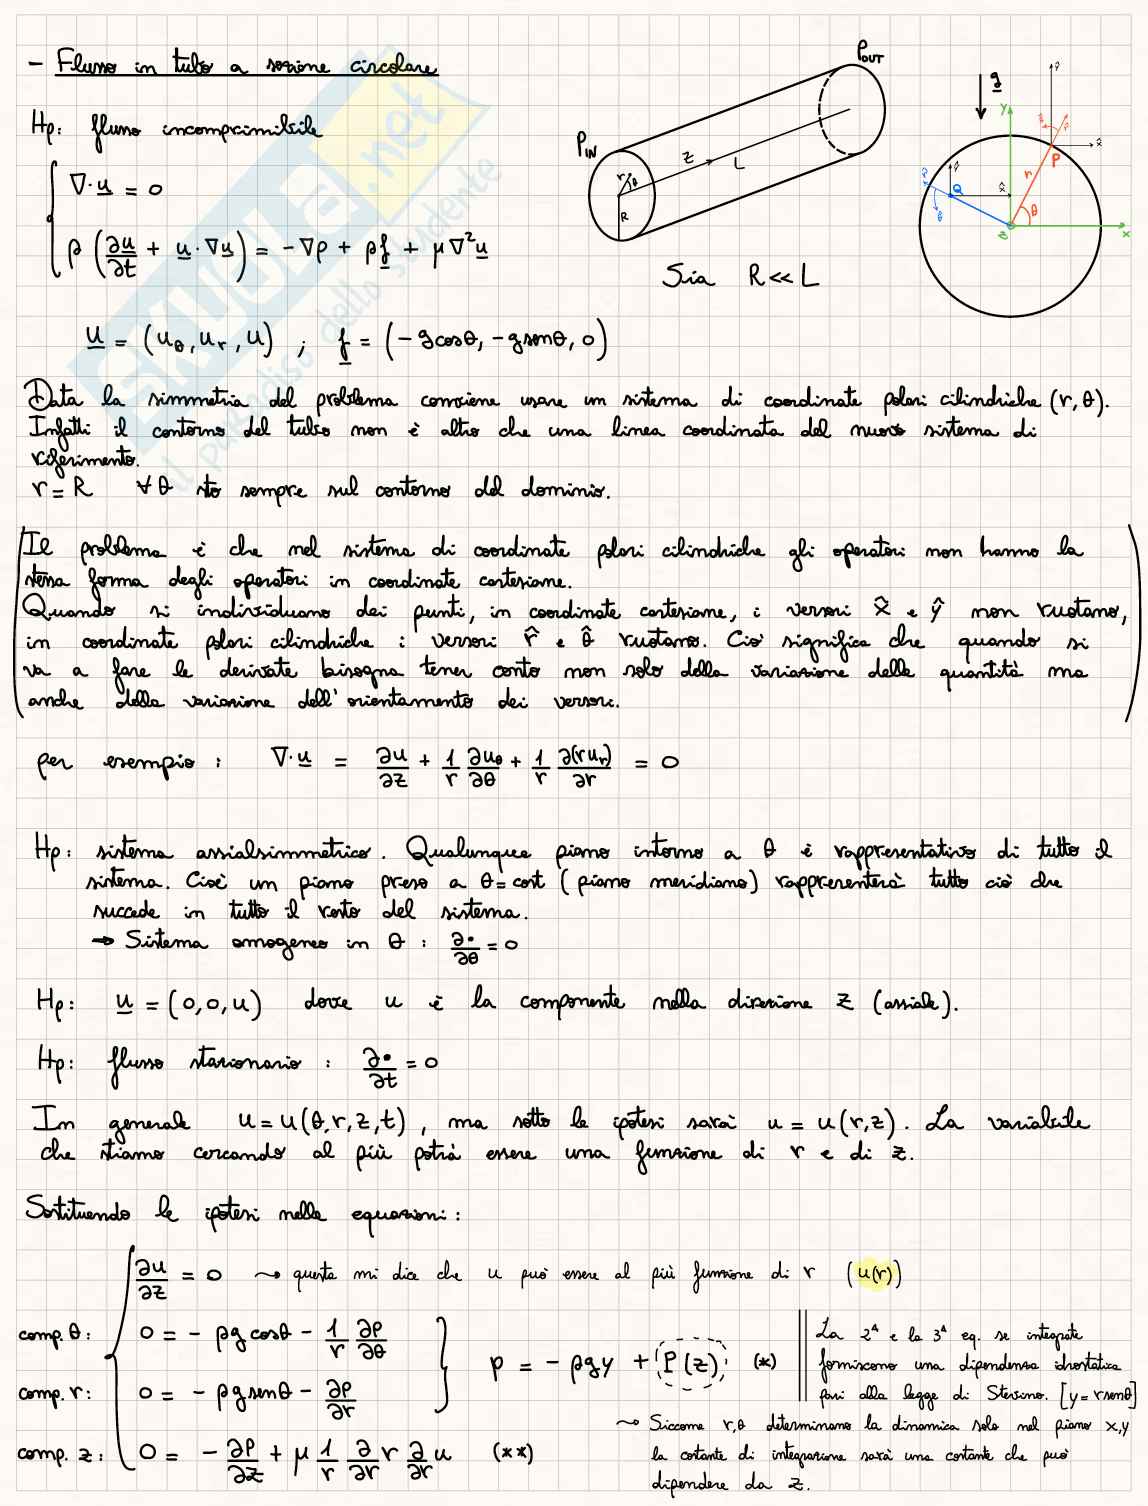 - Flusso in tubo a sezione circolare
Hp: flusso incomprimibile
∇·u = 0
ρ (∂u/∂t + u·∇u) = -∇p + ρf + μ∇²u
P_IN
P_OUT
r
θ
z
L
R
Sia R<<L
g
y
x
z
r
θ
P
Q
r̂
θ̂
x̂
ŷ
u = (u_θ, u_r, u) ; f = (-g cosθ, -g senθ, 0)
Data la simmetria del problema conviene usare un sistema di coordinate polari cilindriche (r, θ).
Infatti il contorno del tubo non è altro che una linea coordinata del nuovo sistema di
riferimento.
r = R ∀θ sto sempre sul contorno del dominio.
(Il problema è che nel sistema di coordinate polari cilindriche gli operatori non hanno la
stessa forma degli operatori in coordinate cartesiane.
Quando si individuano dei punti, in coordinate cartesiane, i versori x̂ e ŷ non ruotano,
in coordinate polari cilindriche i versori r̂ e θ̂ ruotano. Ciò significa che quando si
va a fare le derivate bisogna tener conto non solo della variazione delle quantità ma
anche della variazione dell'orientamento dei versori.)
per esempio : ∇·u = ∂u/∂z + 1/r ∂u_θ/∂θ + 1/r ∂(r u_r)/∂r = 0
Hp: sistema assialsimmetrico. Qualunque piano intorno a θ è rappresentativo di tutto il
sistema. Cioè un piano preso a θ=cost (piano meridiano) rappresenterà tutto ciò che
succede in tutto il resto del sistema.
→ Sistema omogeneo in θ : ∂•/∂θ = 0
Hp: u = (0,0,u) dove u è la componente nella direzione z (assiale).
Hp: flusso stazionario : ∂•/∂t = 0
In generale u = u(θ,r,z,t), ma sotto le ipotesi sarà u = u(r,z). La variabile
che stiamo cercando al più potrà essere una funzione di r e di z.
Sostituendo le ipotesi nelle equazioni:
∂u/∂z = 0 → questa mi dice che u può essere al più funzione di r (u(r))
comp. θ: 0 = -ρg cosθ - 1/r ∂p/∂θ
comp. r: 0 = -ρg senθ - ∂p/∂r
p = -ρgy + P(z) (*)
comp. z: 0 = -∂P/∂z + μ 1/r ∂/∂r r ∂/∂r u (**)
La 2ª e la 3ª eq. se integrate
forniscono una dipendenza idrostatica
pari alla legge di Stevino. [y = r senθ]
→ Siccome r,θ determinano la dinamica solo nel piano x,y
la costante di integrazione sarà una costante che può
dipendere da z.
SKUOLA.net
il paradiso dello studente